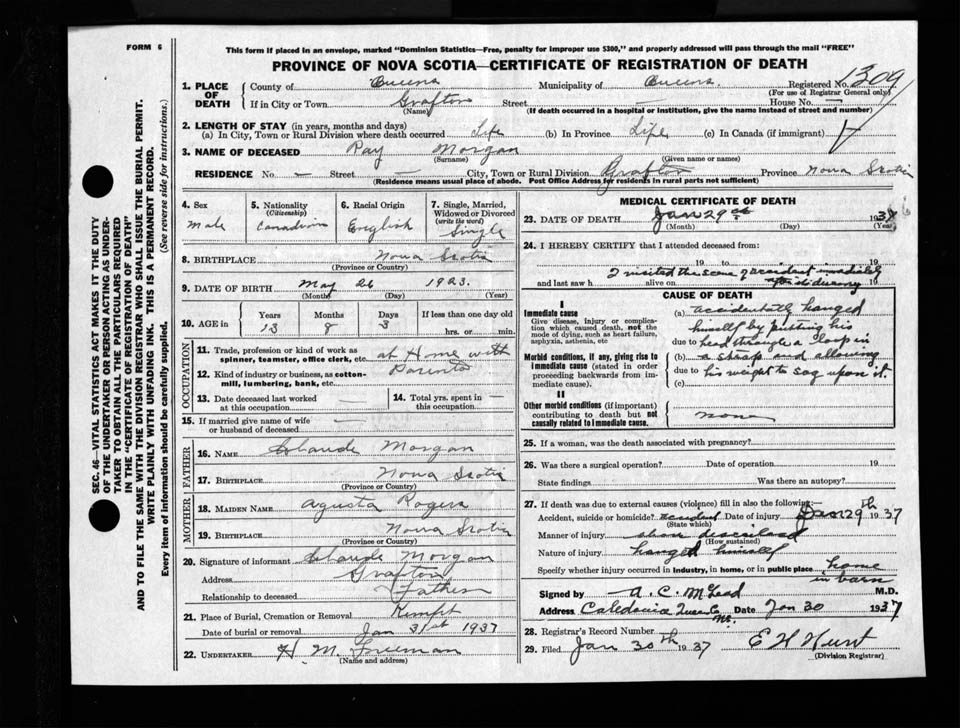 FORM 6
This form if placed in an envelope, marked "Dominion Statistics—Free, penalty for improper use $300," and properly addressed will pass through the mail "FREE"
PROVINCE OF NOVA SCOTIA—CERTIFICATE OF REGISTRATION OF DEATH
SEC. 46—VITAL STATISTICS ACT MAKES IT THE DUTY
OF THE UNDERTAKER OR PERSON ACTING AS UNDER-
TAKER TO OBTAIN ALL THE PARTICULARS REQUIRED
IN THE "CERTIFICATE OF REGISTRATION OF DEATH"
AND TO FILE THE SAME WITH THE DIVISION REGISTRAR WHO SHALL ISSUE THE BURIAL PERMIT.
WRITE PLAINLY WITH UNFADING INK. THIS IS A PERMANENT RECORD.
Every item of information should be carefully supplied. (See reverse side for instructions.)
1. PLACE OF DEATH
County of Queens Municipality of Queens Registered No. 1309
(For use of Registrar General only)
If in City or Town Grafton Street — House No. —
(Name) (If death occurred in a hospital or institution, give the name instead of street and number)
2. LENGTH OF STAY (in years, months and days)
(a) In City, Town or Rural Division where death occurred Life (b) In Province Life (c) In Canada (if immigrant)
3. NAME OF DECEASED Ray Morgan
(Surname) (Given name or names)
RESIDENCE No. — Street — City, Town or Rural Division Grafton Province Nova Scotia
(Residence means usual place of abode. Post Office Address for residents in rural parts not sufficient)
4. Sex
Male
5. Nationality
(Citizenship)
Canadian
6. Racial Origin
English
7. Single, Married, Widowed or Divorced
(write the word)
Single
8. BIRTHPLACE Nova Scotia
(Province or Country)
9. DATE OF BIRTH May 26 1923
(Month) (Day) (Year)
10. AGE in Years Months Days If less than one day old
13 8 3 hrs. or min.
OCCUPATION
11. Trade, profession or kind of work as spinner, teamster, office clerk, etc. at Home with
12. Kind of industry or business, as cotton-mill, lumbering, bank, etc. Parents
13. Date deceased last worked at this occupation —
14. Total yrs. spent in this occupation —
15. If married give name of wife or husband of deceased —
FATHER
16. NAME Claude Morgan
17. BIRTHPLACE Nova Scotia
(Province or Country)
MOTHER
18. MAIDEN NAME Agusta Rogers
19. BIRTHPLACE Nova Scotia
(Province or Country)
20. Signature of informant Claude Morgan
Address Grafton
Relationship to deceased Father
21. Place of Burial, Cremation or Removal Kempt
Date of burial or removal Jan 31st 1937
22. UNDERTAKER H. M. Freeman
(Name and address)
MEDICAL CERTIFICATE OF DEATH
23. DATE OF DEATH Jan 29th 1937
(Month) (Day) (Year)
24. I HEREBY CERTIFY that I attended deceased from:
19 to 19
I visited the scene of accident immediately
and last saw h alive on after discovery 19
CAUSE OF DEATH
I
Immediate cause
Give disease, injury or complication which caused death, not the mode of dying, such as heart failure, asphyxia, asthenia, etc
Morbid conditions, if any, giving rise to immediate cause (stated in order proceeding backwards from immediate cause).
II
Other morbid conditions (if important) contributing to death but not causally related to immediate cause.
(a) accidentally hanged
himself by putting his
due to head through a loop in
(b) a strap and allowing
due to his weight to sag upon it.
(c)
none
25. If a woman, was the death associated with pregnancy?
26. Was there a surgical operation? Date of operation 19
State findings Was there an autopsy?
27. If death was due to external causes (violence) fill in also the following:—
Accident, suicide or homicide? accident Date of injury Jan 29th 1937
(State which)
Manner of injury above described
(How sustained)
Nature of injury hanged himself
Specify whether injury occurred in industry, in home, or in public place home
in barn
Signed by A. C. McLeod M.D.
Address Caledonia Queens Co NS. Date Jan 30 1937
28. Registrar's Record Number
29. Filed Jan 30th 1937 E H Hurst
(Division Registrar)